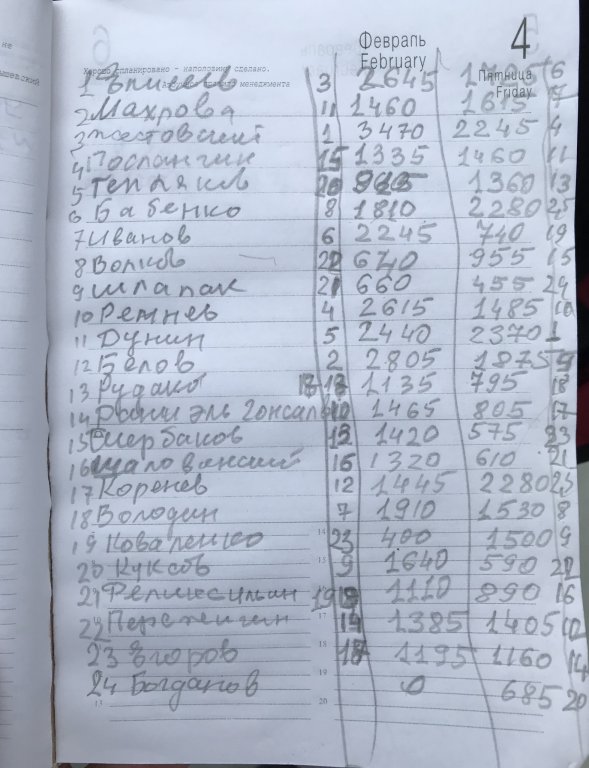 Февраль
February
4
Пятница
Friday
Хорошо спланировано - наполовину сделано.
менеджмента
1 3 2645 6
2 Махрова 11 1460 1615
3 жестовский 1 3470 2245 4
4 Послангин 15 1335 1460 11
5 Тепляков 20 1360 13
6 Бабенко 8 1810 2280
7 Иванов 6 2245 740 19
8 Волков 22 670 955 15
9 шлапак 21 660 455 24
10 Ремнев 4 2615 1485 10
11 Дунин 5 2440 2370 1
12 Белов 2 2805 1875
13 Рудаков 1135 795 18
14 Гонсал 10 1465 805 17
15 Щербаков 1420 575 23
16 Шаловинский 16 1320 610 21
17 Коренев 12 1445 2280
18 Володин 7 1910 1530 8
19 Коваленко 23 400 1500 9
20 Куксов 9 1640 590 22
21 19 1110 890 16
22 14 1385 1405 12
23 Егоров 1195 1160 14
24 Богданов 0 685 20